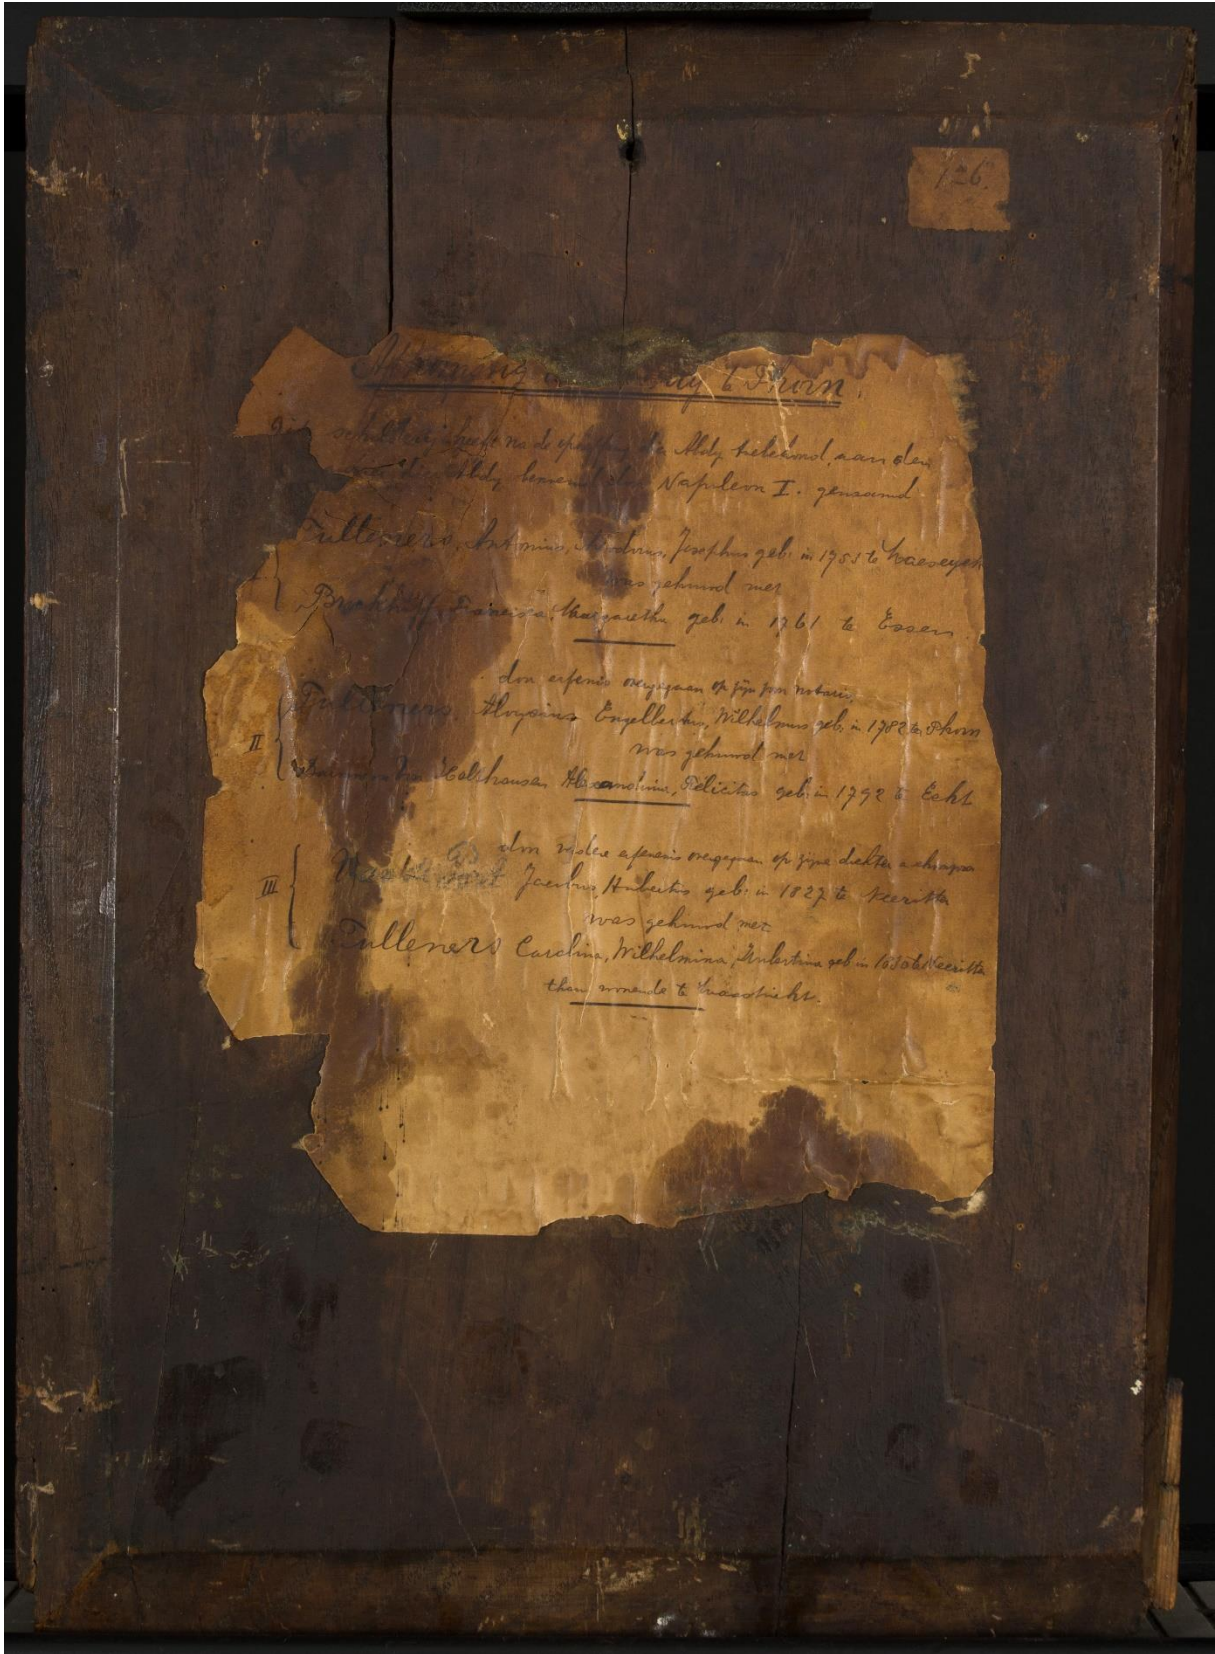 126.
Afkomstig Abdy te Thorn.
schildery heeft na de opheffing der Abdy toebehoord aan den
der Abdy benoemd door Napoleon I. genaamd
Tulleners, Antonius, Josephus geb. in 1753 te Maeseyck
was gehuwd met
Francisca, Margaretha geb. in 1761 te Essen.
door erfenis overgegaan op zijn zoon notaris,
II Tulleners, Aloysius Engelbertus, Wilhelmus geb. in 1782 te Thorn
was gehuwd met
Holthausen Alexandrina, Felicitas geb. in 1792 te Echt
door verdere erfenis overgegaan op zijne dochter
III Jacobus, Hubertus geb. in 1827 te Neeritter
was gehuwd met
Tulleners Carolina, Wilhelmina, Hubertina geb. in te Neeritter
thans wonende te Maastricht.